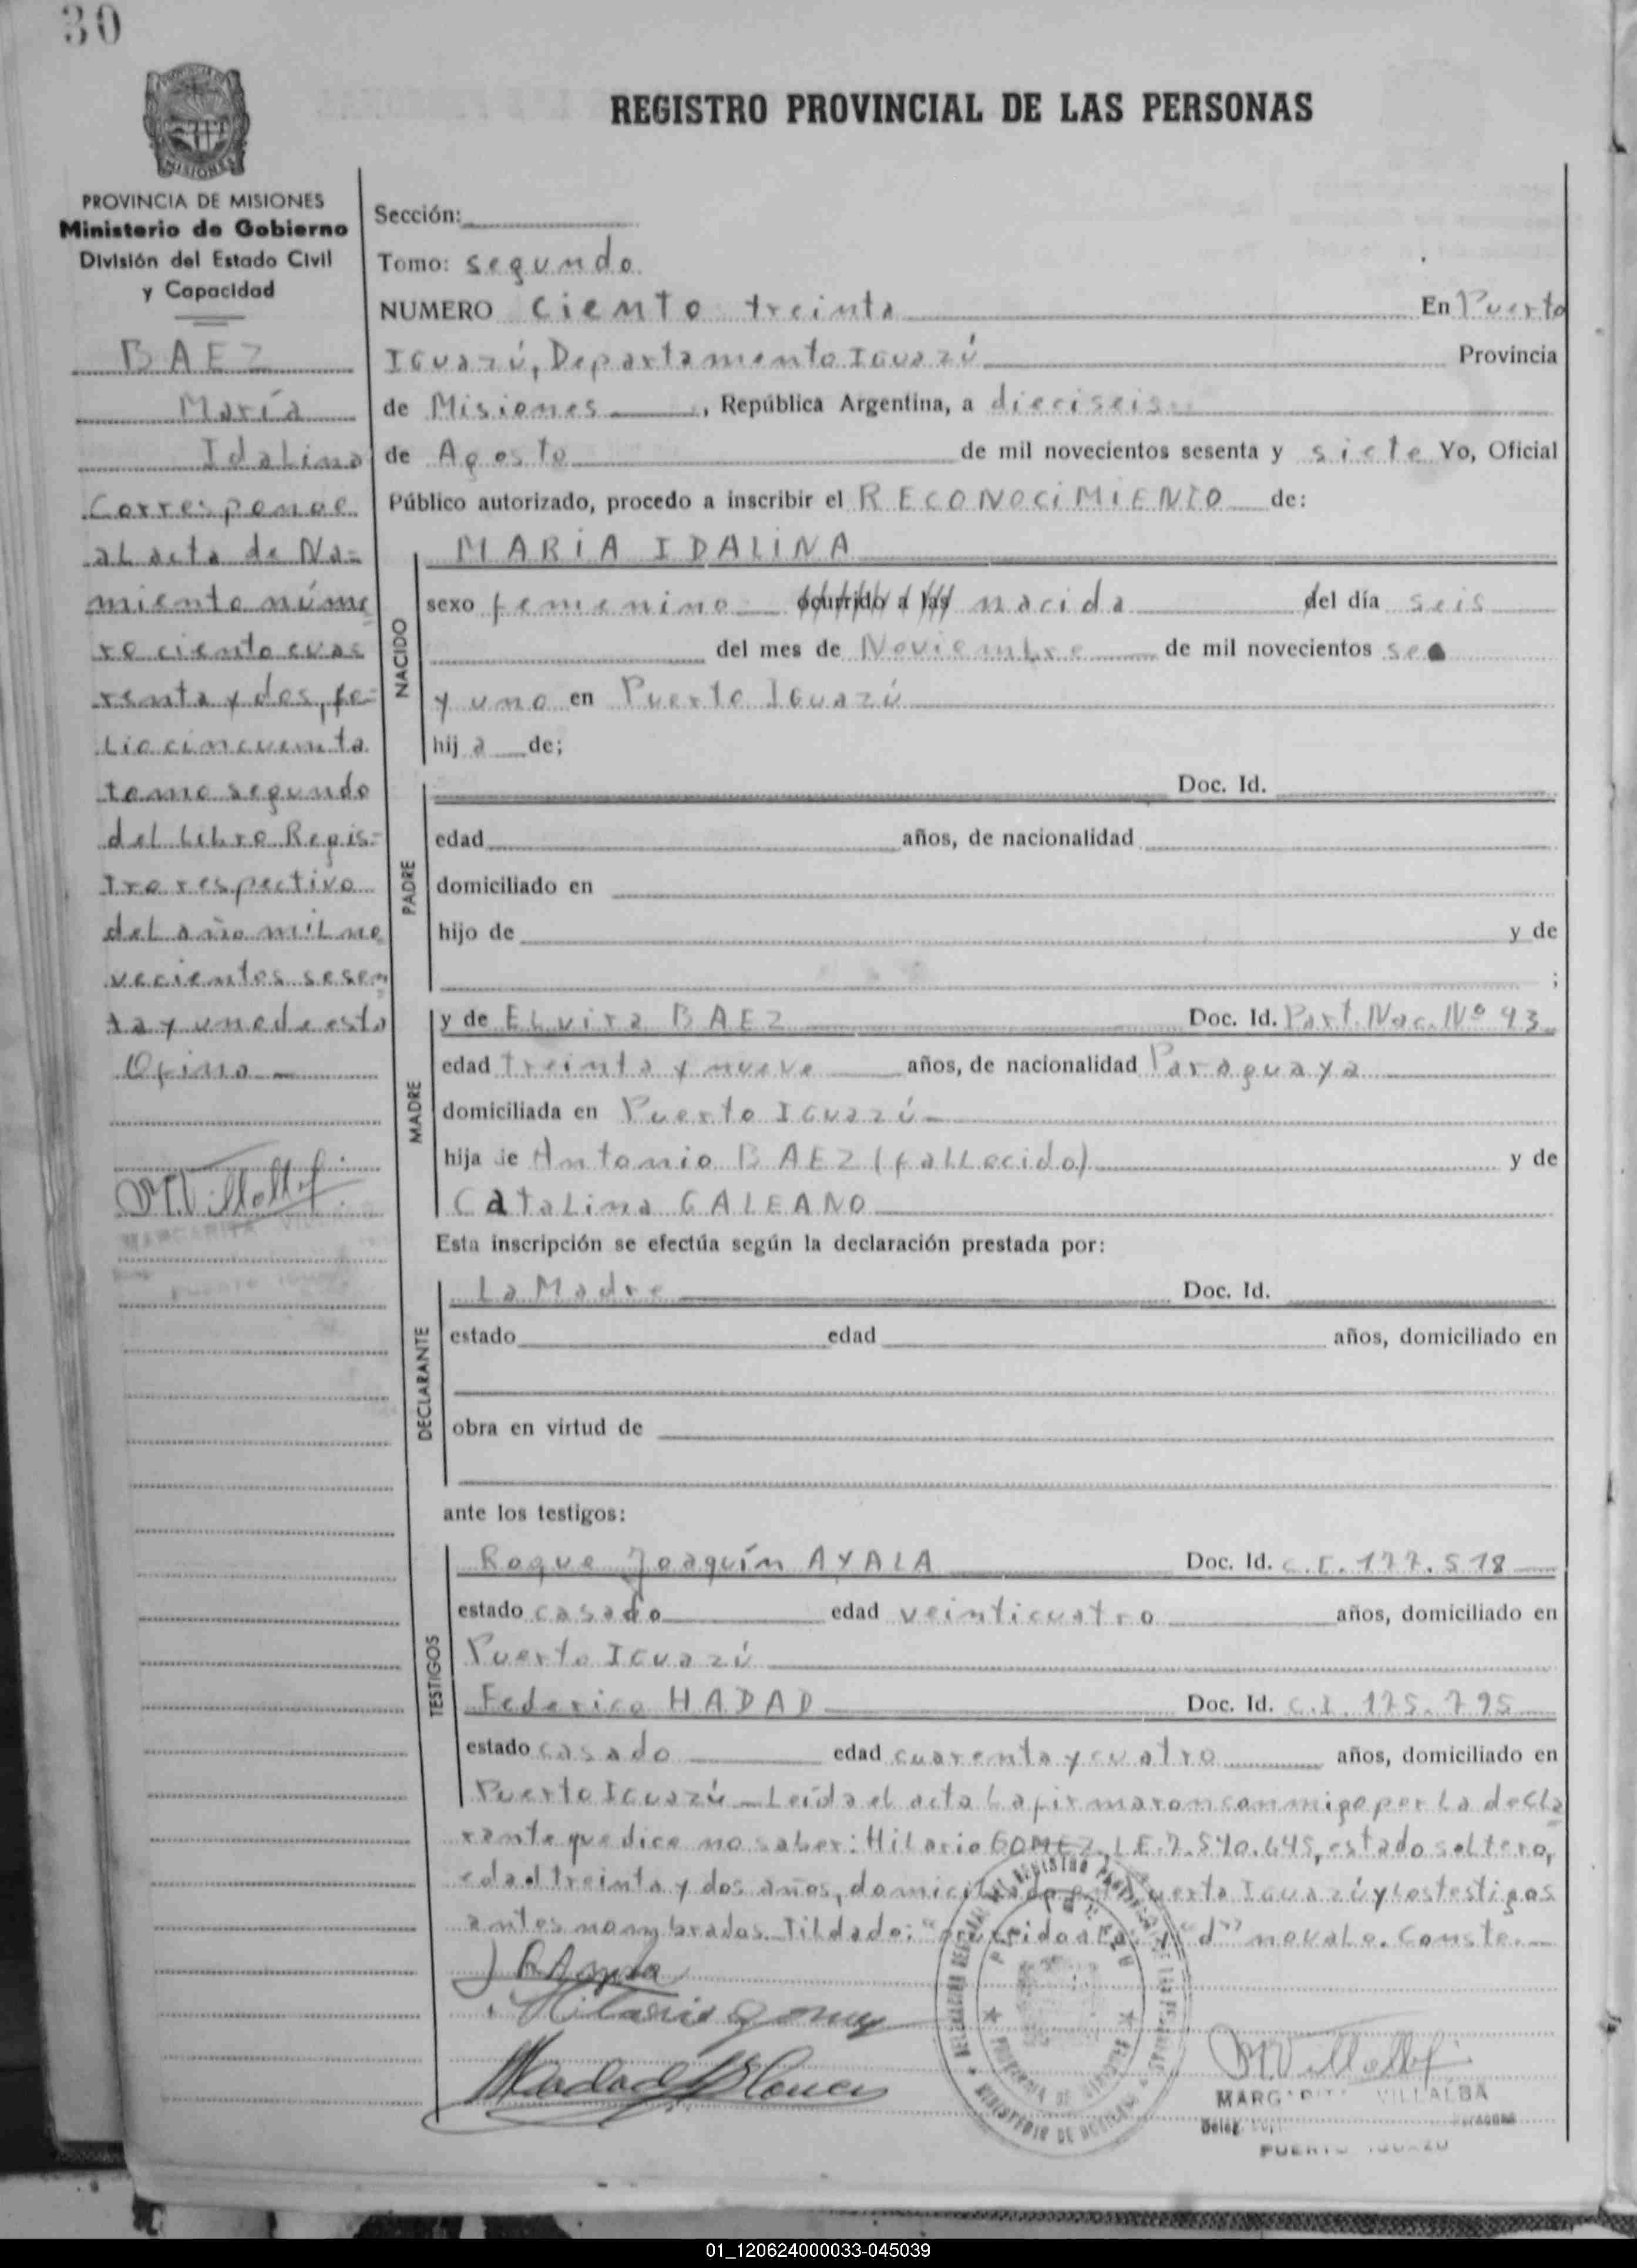 30
REGISTRO PROVINCIAL DE LAS PERSONAS
PROVINCIA DE MISIONES
Ministerio de Gobierno
División del Estado Civil
y Capacidad
BAEZ
María
Idalina
Corresponde
al acta de Na-
miento núme
ro ciento cua
renta y dos, fo-
lio cincuenta
tomo segundo
del Libro Regis-
tro respectivo
del año mil no
vecientos sesen
ta y uno de esta
Ofina
MARGARITA
Sección:
Tomo: segundo
NUMERO ciento treinta En Puerto
Iguazú, Departamento Iguazú Provincia
de Misiones, República Argentina, a dieciseis
de Agosto de mil novecientos sesenta y siete Yo, Oficial
Público autorizado, procedo a inscribir el RECONOCIMIENTO de:
NACIDO
MARIA IDALINA
sexo femenino ocurrido a las nacida del día seis
del mes de Noviembre de mil novecientos se
y uno en Puerto Iguazú
hij a de;
PADRE
Doc. Id.
edad años, de nacionalidad
domiciliado en
hijo de y de
;
MADRE
y de Elvira BAEZ Doc. Id. Part. Nac. Nº 93
edad treinta y nueve años, de nacionalidad Paraguaya
domiciliada en Puerto Iguazú
hija de Antonio BAEZ (fallecido) y de
Catalina GALEANO
Esta inscripción se efectúa según la declaración prestada por:
DECLARANTE
La Madre Doc. Id.
estado edad años, domiciliado en
obra en virtud de
ante los testigos:
TESTIGOS
Roque Joaquín AYALA Doc. Id. C.I. 177.518
estado casado edad veinticuatro años, domiciliado en
Puerto Iguazú
Federico HADAD Doc. Id. C.I. 175.795
estado casado edad cuarenta y cuatro años, domiciliado en
Puerto Iguazú - Leída el acta la firmaron conmigo por la decla
rante que dice no saber: Hilario GOMEZ, L.E. 7.540.645, estado soltero,
edad treinta y dos años, domiciliado en Puerto Iguazú y los testigos
antes nombrados. Tildado: "ocurrido a las y "d" no vale. Conste.
Hilario Gomez
MARGARITA VILLALBA
PUERTO IGUAZU
01_120624000033-045039